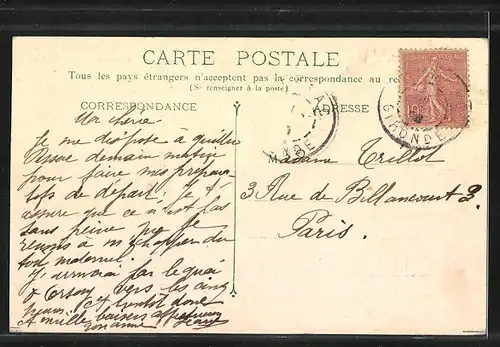 CARTE POSTALE
Tous les pays étrangers n'acceptent pas la correspondance au
(Se renseigner à la poste)
CORRESPONDANCE
ADRESSE
GIRONDE
10
Ma chérie
Je me dispose à quitter
demain matin
pour faire mes prépara-
tifs de départ; Je t'
assure que ce n'est pas
sans peine que je
renonce à m'échapper du
toit maternel.
J'arriverai par le quai
d'Orsay vers les cinq
heures. A bientôt donc
et mille baisers affectueux
Madame Trillot
3 Rue de Billancourt 3.
Paris.